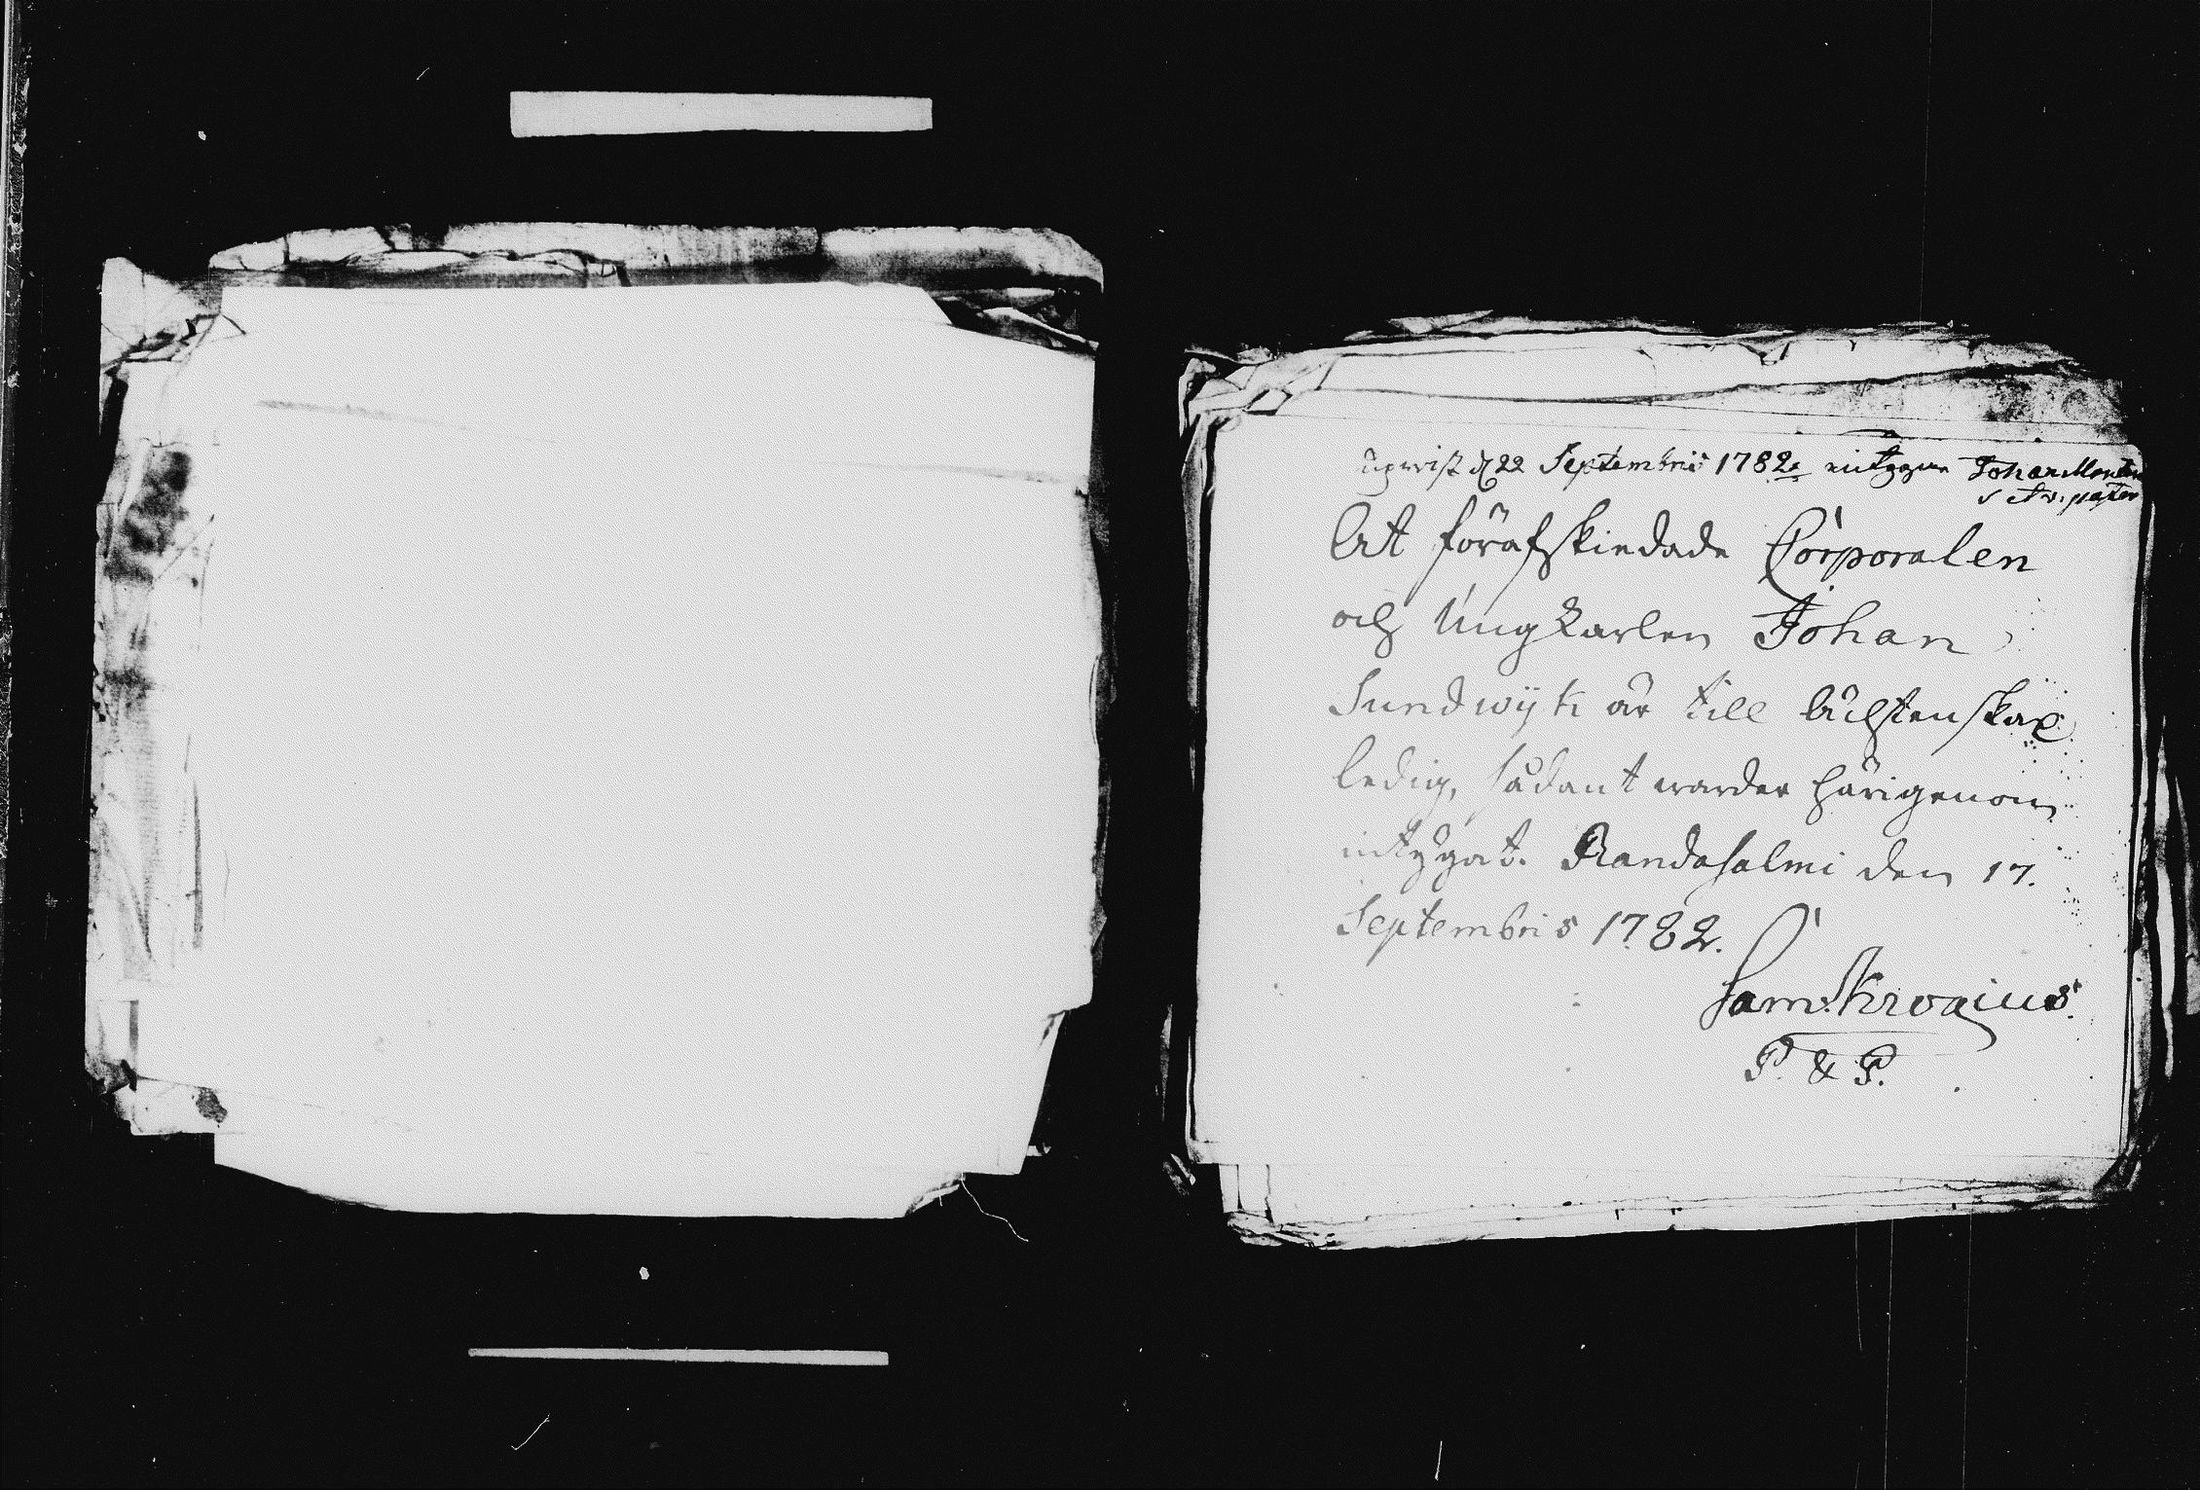 upwist d 22 Septembris 1782 intygar Johan
At förafskiedade Corporalen
och Ungkarlen Johan
Sundwijk är till ächtenskap
ledig, sådant warder härigenom
intÿgat. Randasalmi den 17.
Septembris 1782.
Sam: Krogius.
P. & P.